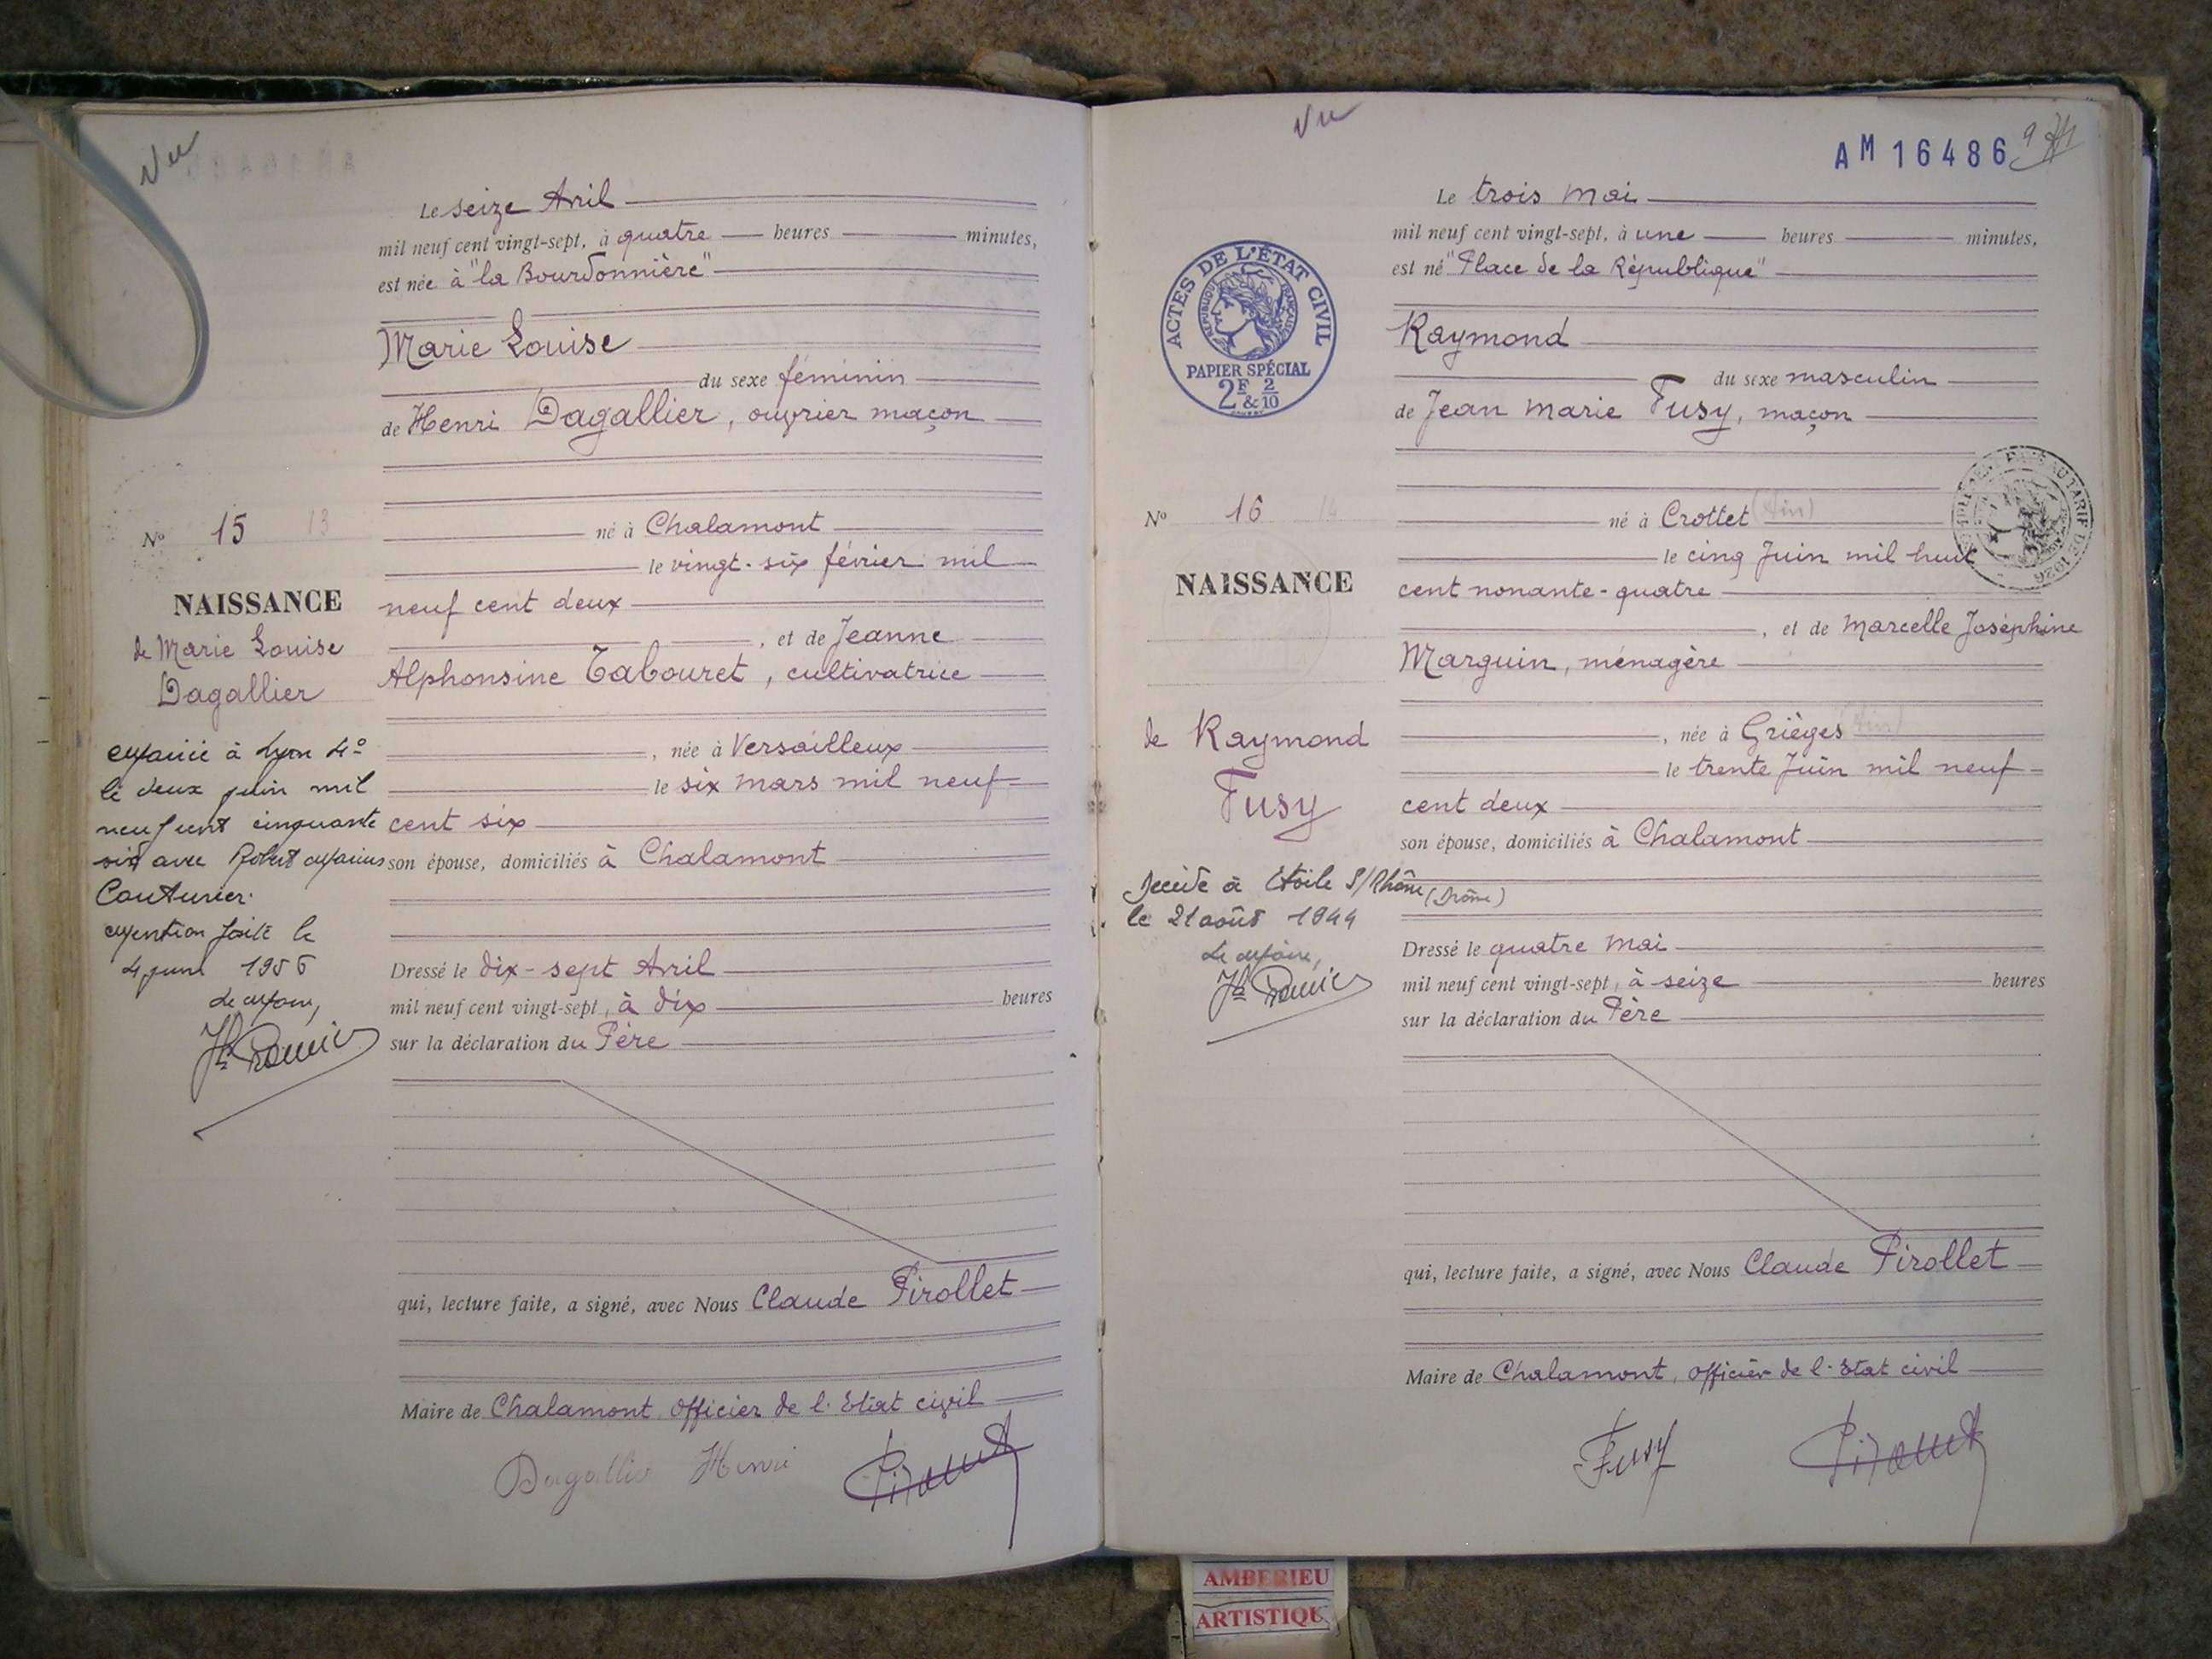 Vu
Le seize Avril
mil neuf cent vingt-sept, à quatre heures minutes,
est née à "la Bourdonnière"
Marie Louise
du sexe féminin
de Henri Dagallier, ouvrier maçon
né à Chalamont
le vingt-six février mil
neuf cent deux
, et de Jeanne
Alphonsine Tabouret, cultivatrice
, née à Versailleux
le six mars mil neuf
cent six
son épouse, domiciliés à Chalamont
Dressé le dix-sept Avril
mil neuf cent vingt-sept, à dix heures
sur la déclaration du Père
qui, lecture faite, a signé, avec Nous Claude Pirollet
Maire de Chalamont, Officier de l'Etat civil
Dagallier Henri
No 15 13
NAISSANCE
de Marie Louise
Dagallier
Mariée à Lyon 4e
le deux juin mil
neuf cent cinquante
six avec Robert Marius
Couturier.
Mention faite le
4 juin 1956
Le Maire,
Vu
AM 16486
9
Le trois Mai
mil neuf cent vingt-sept, à une heures minutes,
est né "Place de la République"
Raymond
du sexe masculin
de Jean Marie Fusy, maçon
né à Crottet (Ain)
le cinq Juin mil huit
cent nonante-quatre
, et de Marcelle Joséphine
Marguin, ménagère
, née à Grièges (Ain)
le trente Juin mil neuf
cent deux
son épouse, domiciliés à Chalamont
Dressé le quatre Mai
mil neuf cent vingt-sept, à seize heures
sur la déclaration du Père
qui, lecture faite, a signé, avec Nous Claude Pirollet
Maire de Chalamont, Officier de l'Etat civil
Fusy
ACTES DE L'ÉTAT CIVIL
RÉPUBLIQUE FRANÇAISE
PAPIER SPÉCIAL
2F & 2/10
No 16 14
NAISSANCE
de Raymond
Fusy
Décédé à Etoile S/Rhône (Drôme)
le 21 août 1944
Le Maire,
AU TARIF DE 1926
AMBERIEU
ARTISTIQU